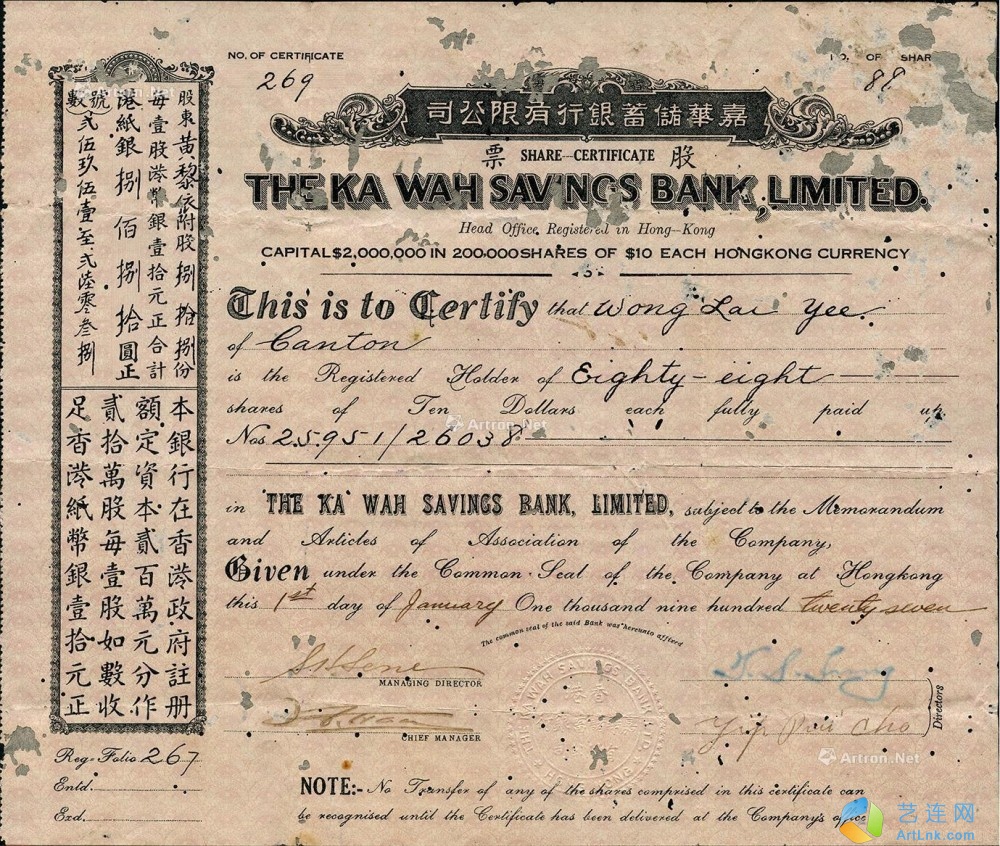 NO. OF CERTIFICATE
269
NO. OF SHAR
88
司公限有行銀蓄儲華嘉
票 SHARE-CERTIFICATE 股
THE KA WAH SAVINGS BANK, LIMITED.
Head Office, Registered in Hong-Kong
CAPITAL $2,000,000 IN 200,000 SHARES OF $10 EACH HONGKONG CURRENCY
This is to Certify that Wong Lai Yee.
of Canton
is the Registered Holder of Eighty-eight
shares of Ten Dollars each fully paid up.
Nos. 25951/26038
in THE KA WAH SAVINGS BANK, LIMITED, subject to the Memorandum
and Articles of Association of the Company,
Given under the Common Seal of the Company at Hongkong
this 1st day of January One thousand nine hundred twenty seven
The common seal of the said Bank was hereunto affixed
MANAGING DIRECTOR
CHIEF MANAGER
Yip Pui Cho
Directors
NOTE:- No Transfer of any of the shares comprised in this certificate can
be recognised until the Certificate has been delivered at the Company's office
股東黃黎依附股捌拾捌份
每壹股港幣銀壹拾元正合計
港紙銀捌佰捌拾圓正
號數 弍伍玖伍壹至弍陸零叁捌
本銀行在香港政府註册
額定資本貳百萬元分作
貳拾萬股每壹股如數收
足香港紙幣銀壹拾元正
Reg. Folio 267
Entd.
Exd.
Artron.Net
Artron.Net
艺连网
ArtLnk.com